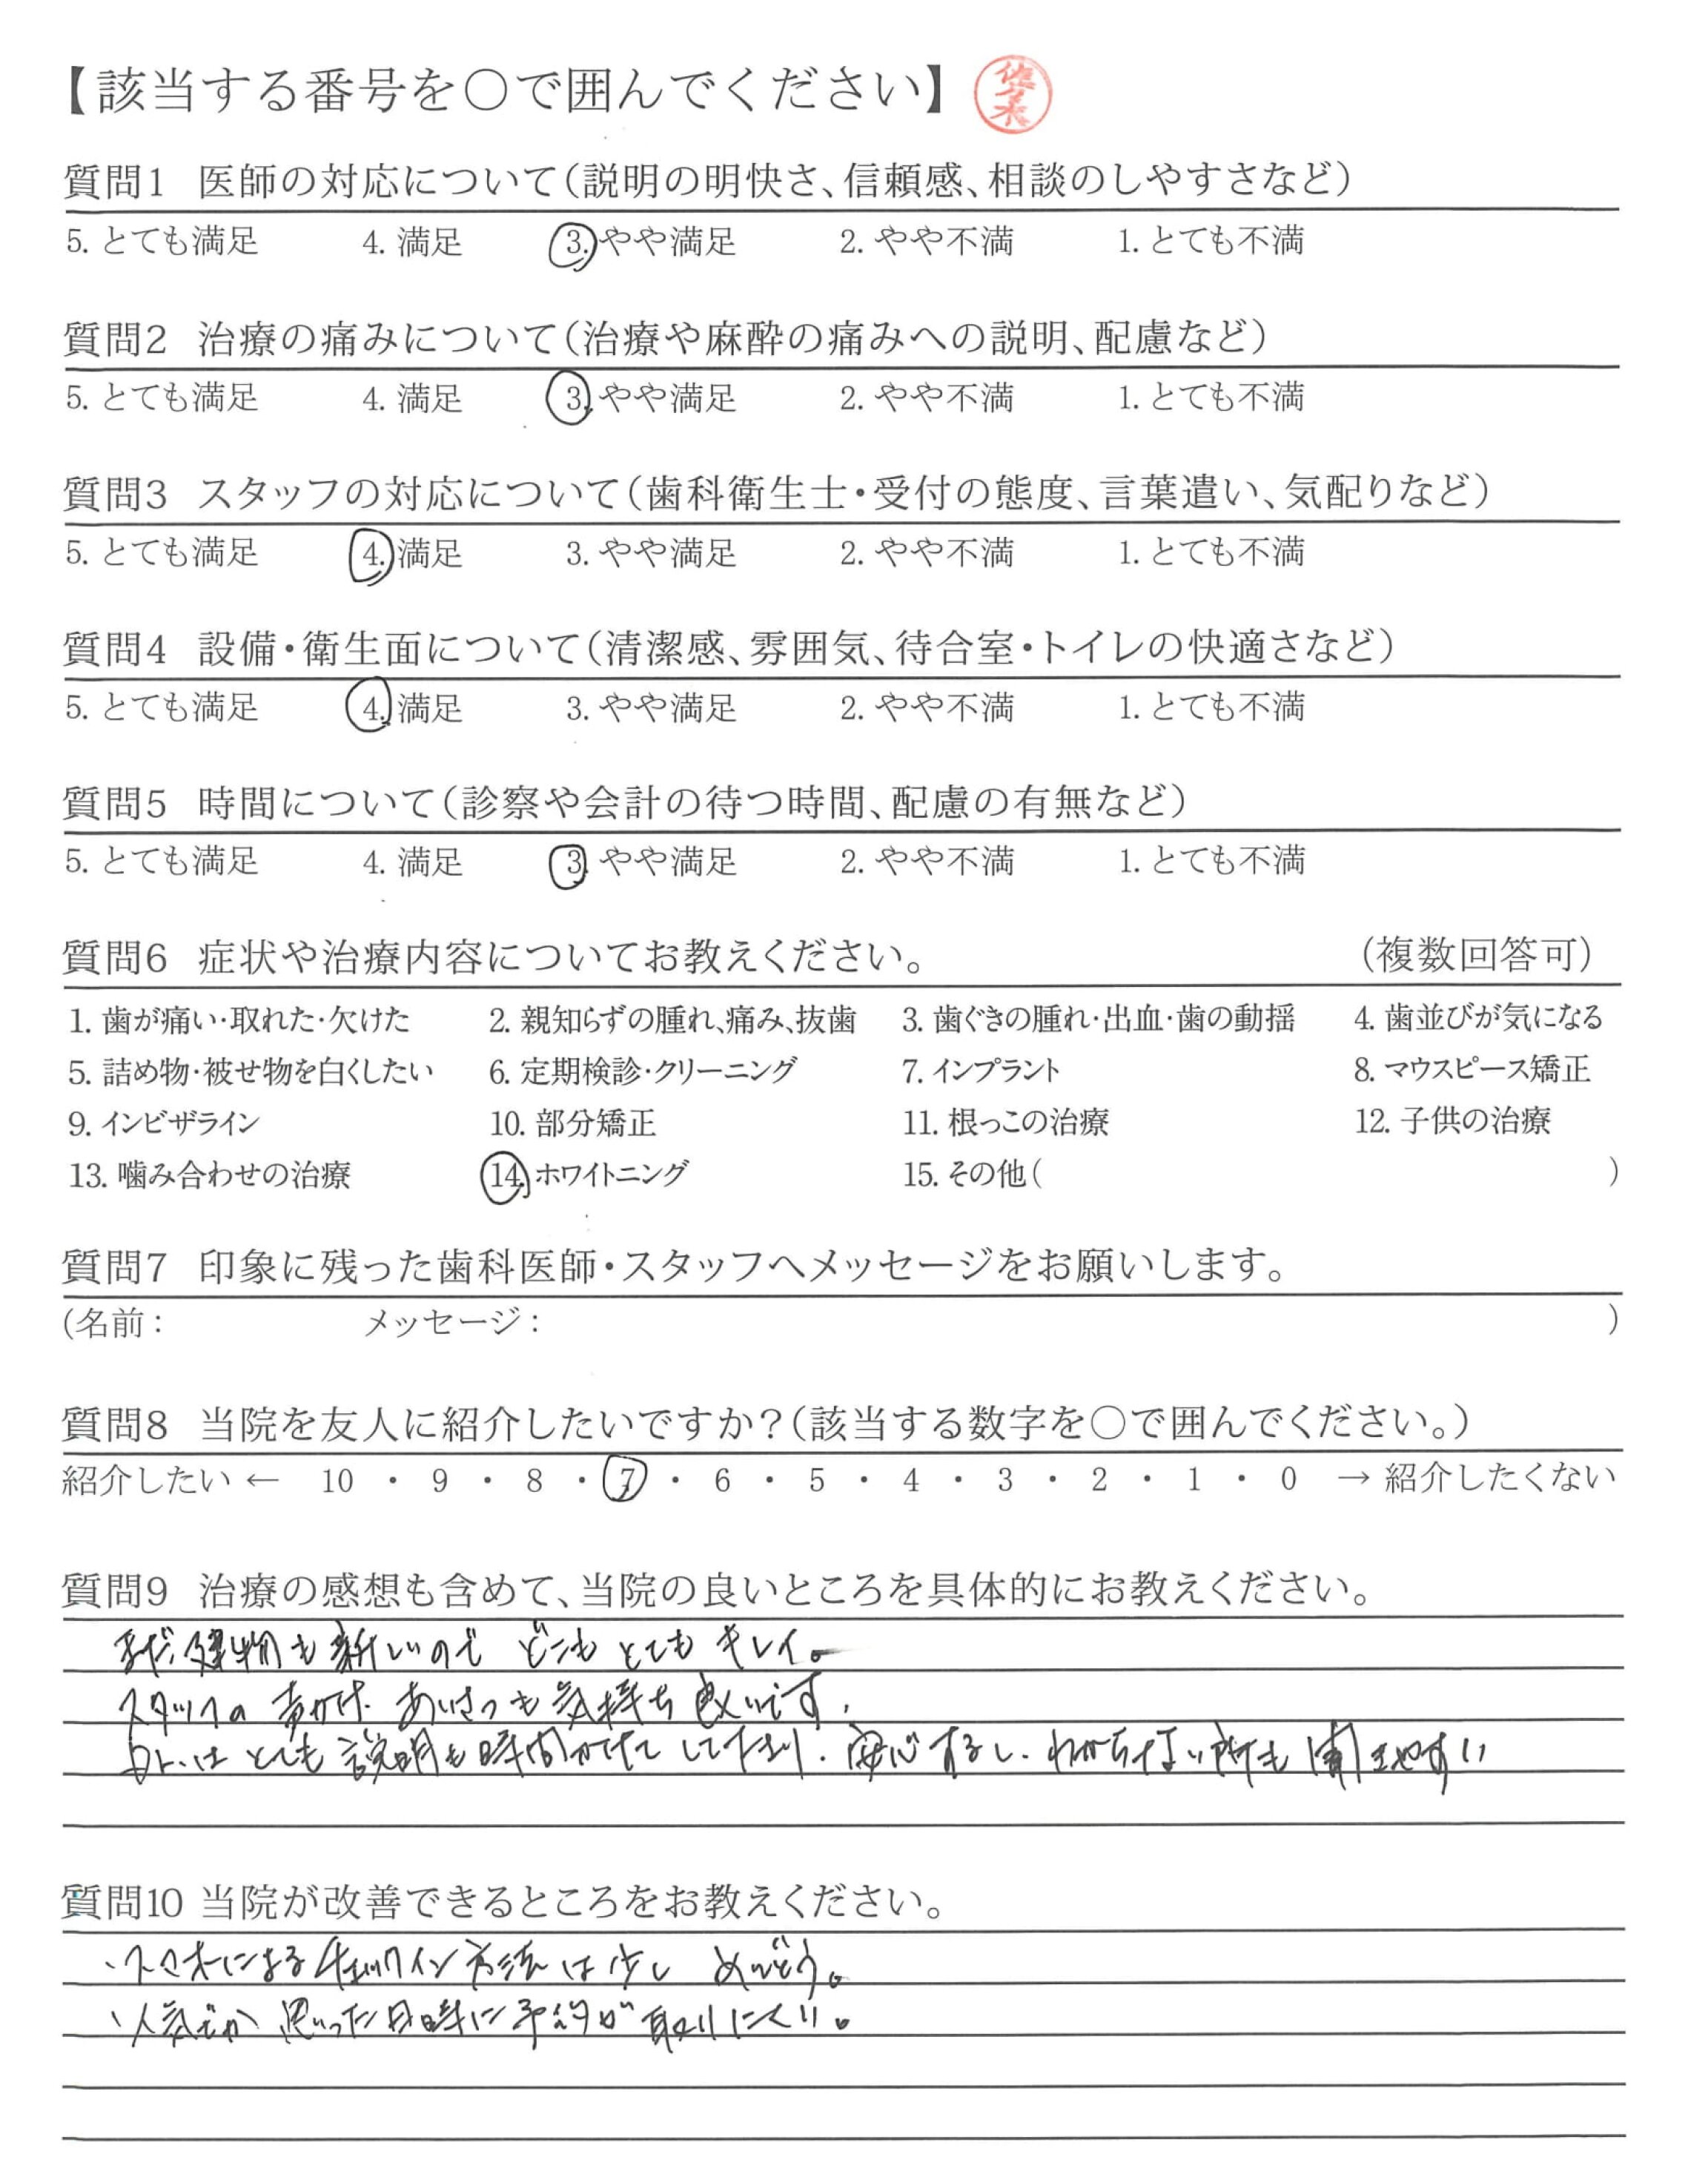 【該当する番号を○で囲んでください】 佐々木
質問1 医師の対応について(説明の明快さ、信頼感、相談のしやすさなど)
5. とても満足 4. 満足 3. やや満足 2. やや不満 1. とても不満
質問2 治療の痛みについて(治療や麻酔の痛みへの説明、配慮など)
5. とても満足 4. 満足 3. やや満足 2. やや不満 1. とても不満
質問3 スタッフの対応について(歯科衛生士・受付の態度、言葉遣い、気配りなど)
5. とても満足 4. 満足 3. やや満足 2. やや不満 1. とても不満
質問4 設備・衛生面について(清潔感、雰囲気、待合室・トイレの快適さなど)
5. とても満足 4. 満足 3. やや満足 2. やや不満 1. とても不満
質問5 時間について(診察や会計の待つ時間、配慮の有無など)
5. とても満足 4. 満足 3. やや満足 2. やや不満 1. とても不満
質問6 症状や治療内容についてお教えください。 (複数回答可)
1. 歯が痛い・取れた・欠けた 2. 親知らずの腫れ、痛み、抜歯 3. 歯ぐきの腫れ・出血・歯の動揺 4. 歯並びが気になる
5. 詰め物・被せ物を白くしたい 6. 定期検診・クリーニング 7. インプラント 8. マウスピース矯正
9. インビザライン 10. 部分矯正 11. 根っこの治療 12. 子供の治療
13. 噛み合わせの治療 14. ホワイトニング 15. その他( )
質問7 印象に残った歯科医師・スタッフへメッセージをお願いします。
(名前: メッセージ: )
質問8 当院を友人に紹介したいですか?(該当する数字を○で囲んでください。)
紹介したい ← 10 ・ 9 ・ 8 ・ 7 ・ 6 ・ 5 ・ 4 ・ 3 ・ 2 ・ 1 ・ 0 → 紹介したくない
質問9 治療の感想も含めて、当院の良いところを具体的にお教えください。
まだ建物も新しいので どこも とても キレイ。
スタッフの 声かけ. あいさつも 気持ち 良いです.
Dr.は とても 説明も 時間かけて して下さり. 安心するし. わからない所も 聞きやすい
質問10 当院が改善できるところをお教えください。
・スマホによる チェックイン 方法は 少し めんどう。
・人気でか 思った日時に 予約が 取りにくい。